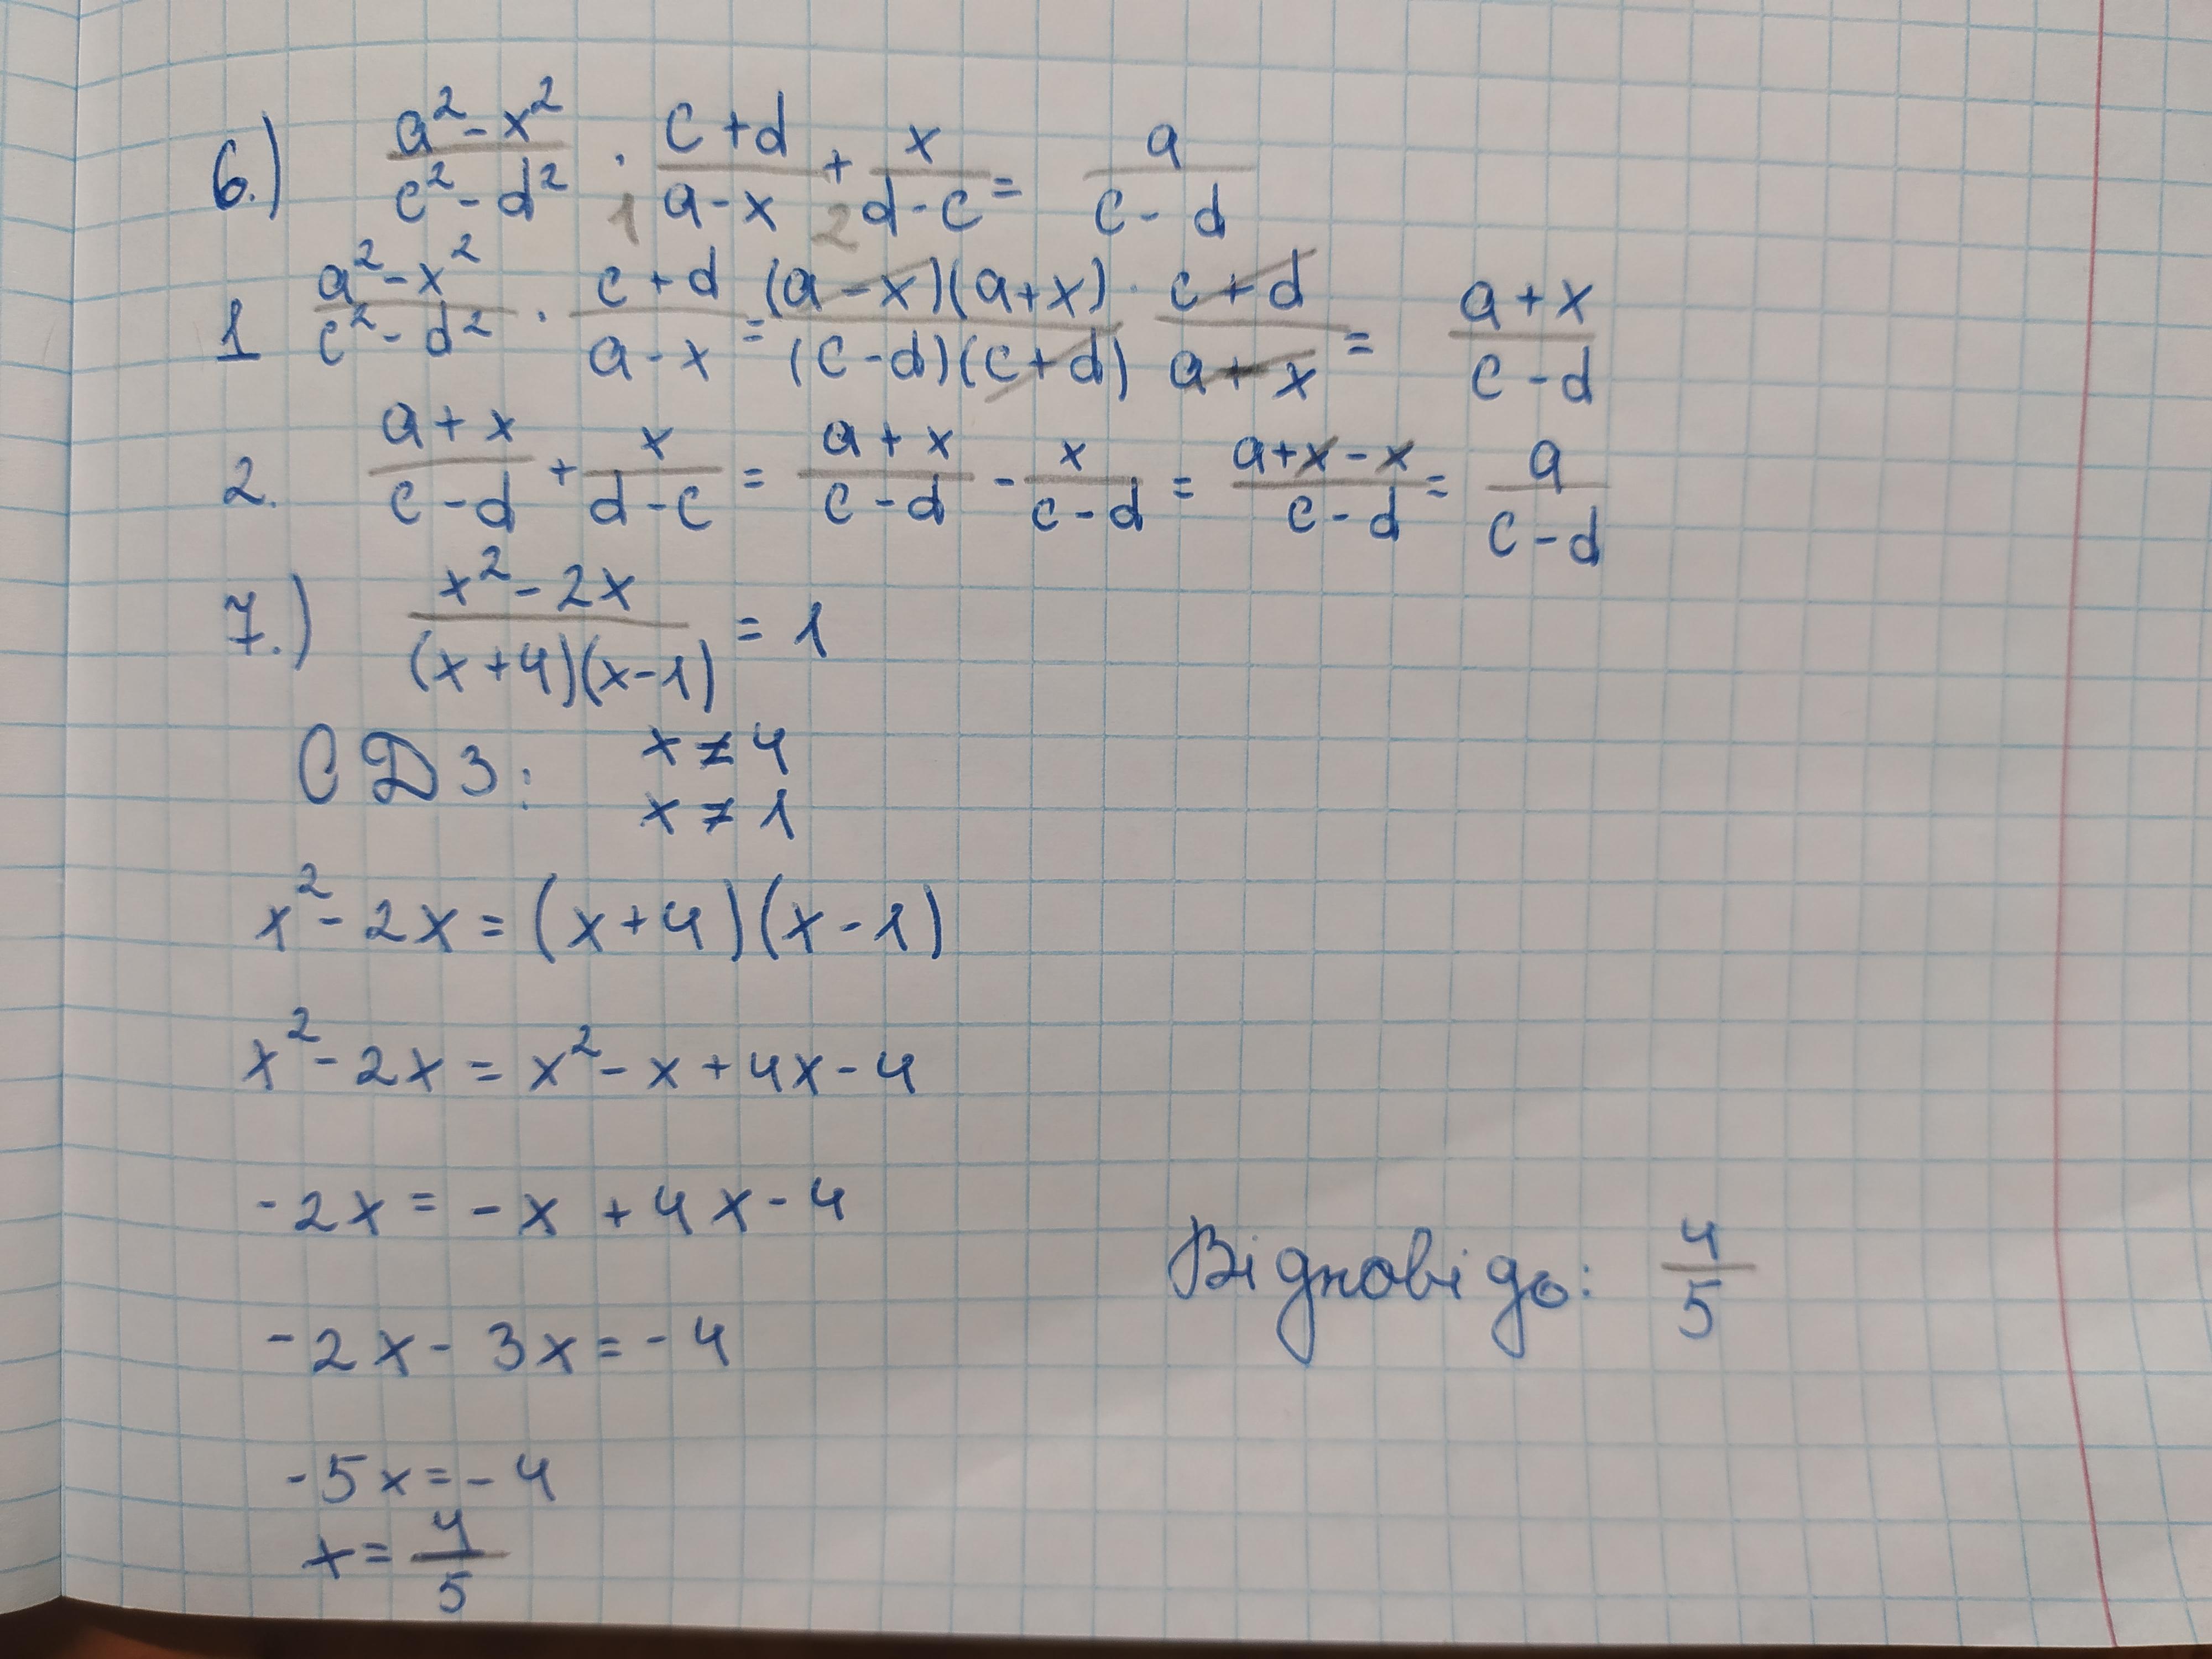 6.) (a² - x²)/(c² - d²) · (c + d)/(a - x) + x/(d - c) = a/(c - d)
1 2
1 (a² - x²)/(c² - d²) · (c + d)/(a - x) = (a - x)(a + x)/(c - d)(c + d) · (c + d)/(a + x) = (a + x)/(c - d)
2. (a + x)/(c - d) + x/(d - c) = (a + x)/(c - d) - x/(c - d) = (a + x - x)/(c - d) = a/(c - d)
7.) (x² - 2x)/((x + 4)(x - 1)) = 1
ОДЗ: x ≠ 4
x ≠ 1
x² - 2x = (x + 4)(x - 1)
x² - 2x = x² - x + 4x - 4
-2x = -x + 4x - 4
-2x - 3x = -4
-5x = -4
x = 4/5
Відповідь: 4/5